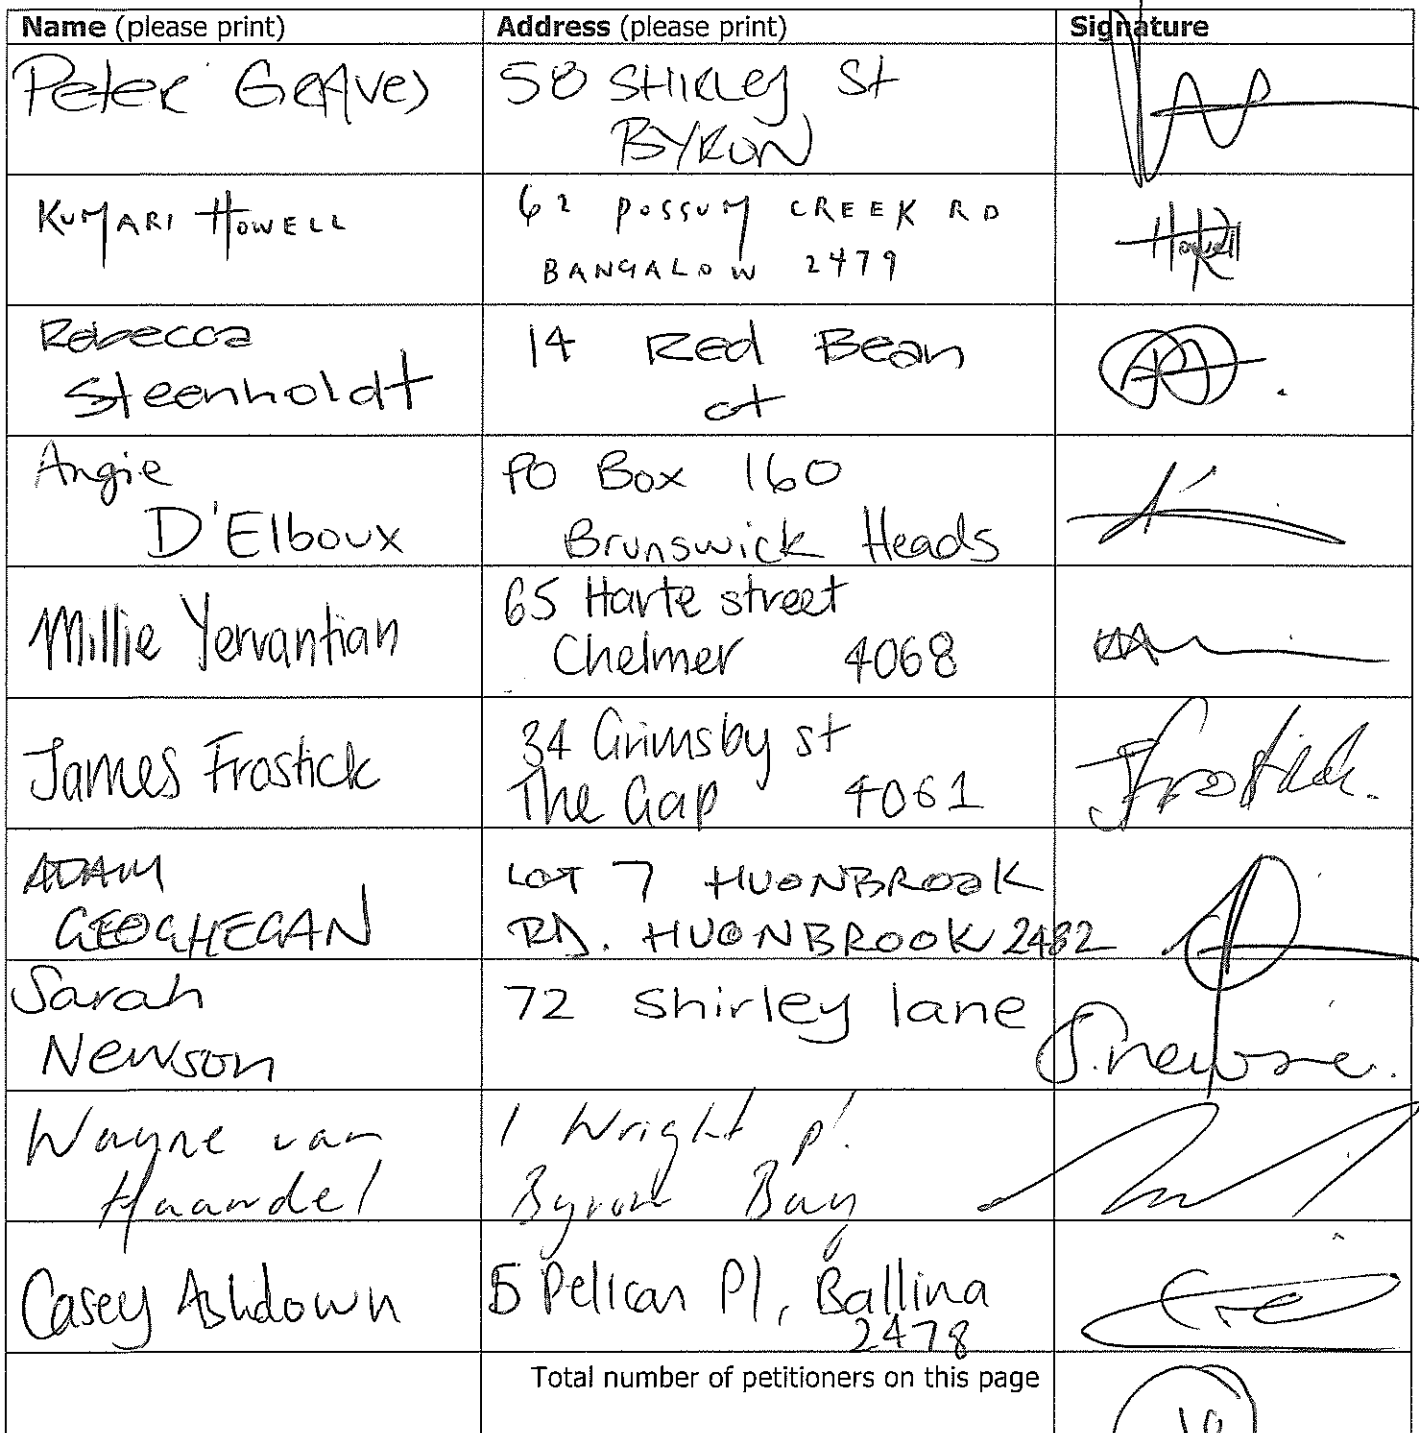 Name (please print) Address (please print) Signature
Peter Greaves 58 Shirley St
BYRON
KUMARI HOWELL 62 POSSUM CREEK RD
BANGALOW 2479
Howell
Rebecca 14 Red Bean
Steenholdt ct
Angie PO Box 160
D'Elboux Brunswick Heads
Millie Yervantian 65 Harte street
Chelmer 4068
James Frostick 34 Grimsby st
The Gap 4061
JFrostick.
ADAM LOT 7 HUONBROOK
GEOGHEGAN RD. HUONBROOK 2482
Sarah 72 Shirley lane
Newson S.newson.
Wayne van 1 Wright pl.
Haandel Byron Bay
Casey Ashdown 5 Pelican Pl, Ballina
2478
Total number of petitioners on this page
10